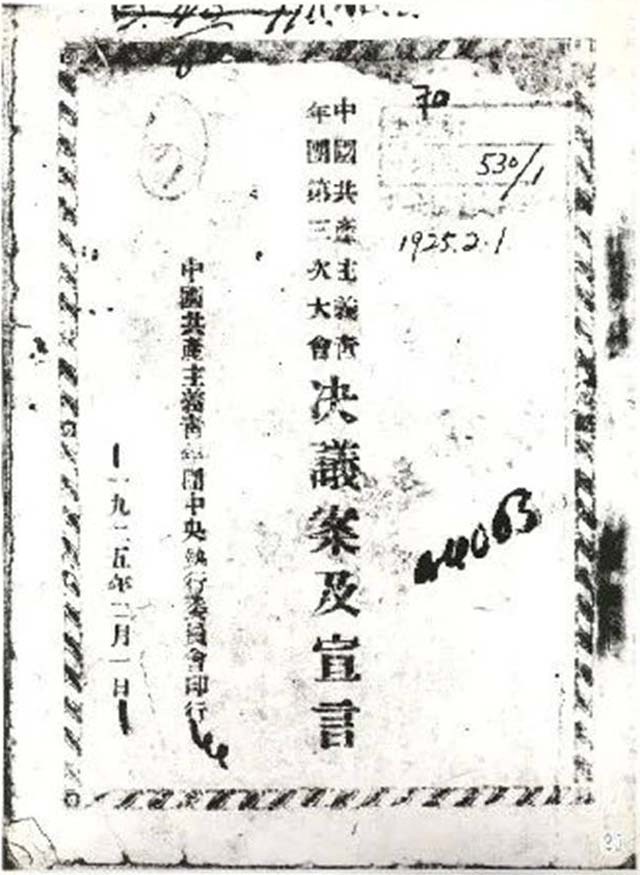 中國共產主義青
年團第三次大會
决議案及宣言
中國共產主義青年團中央執行委員會印行
一九二五年二月一日
530/1
1925.2.1
a4063